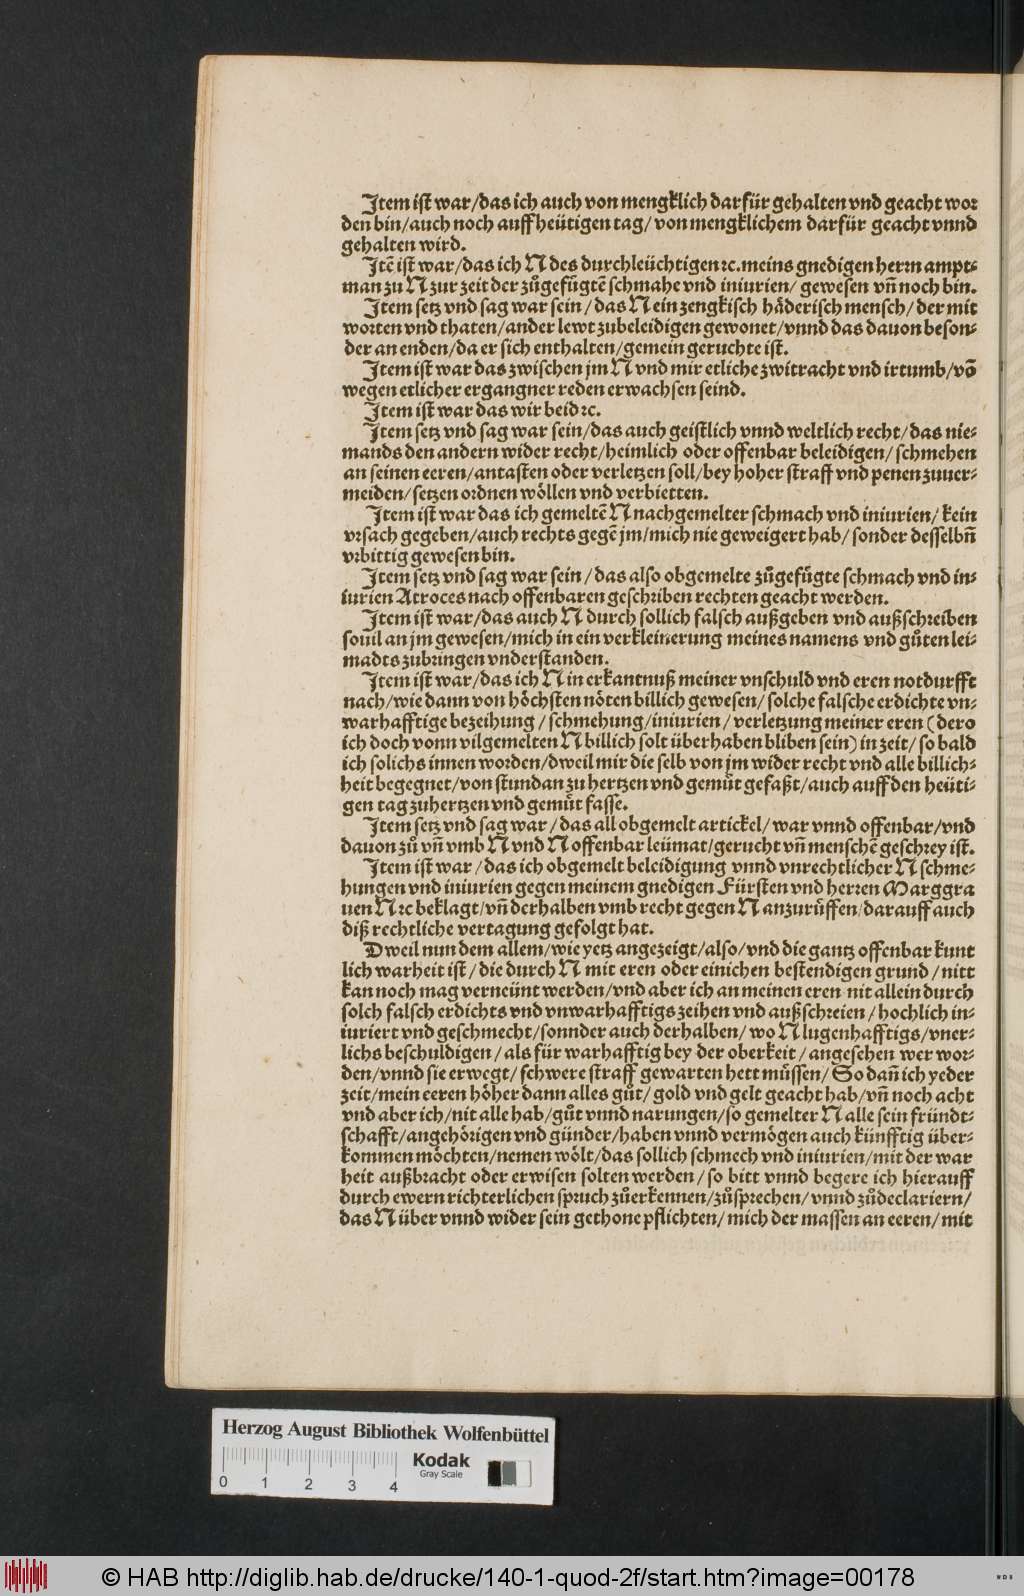 Item ist war/das ich auch von mengklich darfür gehalten vnd geacht wor
den bin/auch noch auff heütigen tag/ von mengklichem darfür geacht vnnd
gehalten wird.
Itē ist war/das ich N des durchleüchtigen ⁊c. meins gnedigen herrn ampt⸗
man zu N zur zeit der zůgefügtē schmahe vnd iniurien/ gewesen vñ noch bin.
Item setz vnd sag war sein/das N ein zengkisch häderisch mensch/der mit
worten vnd thaten/ander lewt zubeleidigen gewonet/vnnd das dauon beson⸗
der an enden/da er sich enthalten/gemein geruchte ist.
Item ist war das zwischen jm N vnd mir etliche zwitracht vnd irtumb/võ
wegen etlicher ergangner reden erwachsen seind.
Item ist war das wir beid ⁊c.
Item setz vnd sag war sein/das auch geistlich vnnd weltlich recht/das nie⸗
mands den andern wider recht/heimlich oder offenbar beleidigen/schmehen
an seinen eeren/antasten oder verletzen soll/bey hoher straff vnd penen zuuer⸗
meiden/setzen ordnen wöllen vnd verbietten.
Item ist war das ich gemeltē N nachgemelter schmach vnd iniurien/kein
vrsach gegeben/auch rechts gegē jm/mich nie geweigert hab/sonder desselbñ
vrbittig gewesen bin.
Item setz vnd sag war sein/das also obgemelte zůgefügte schmach vnd in⸗
iurien Atroces nach offenbaren geschriben rechten geacht werden.
Item ist war/das auch N durch sollich falsch außgeben vnd außschreiben
souil an jm gewesen/mich in ein verkleinerung meines namens vnd gůten lei⸗
madts zubringen vnderstanden.
Item ist war/das ich N in erkantnuß meiner vnschuld vnd eren notdurfft
nach/wie dann von höchsten nöten billich gewesen/solche falsche erdichte vn⸗
warhafftige bezeihung/schmehung/iniurien/verletzung meiner eren (dero
ich doch vonn vilgemelten N billich solt überhaben bliben sein) in zeit/so bald
ich solichs innen worden/dweil mir die selb von jm wider recht vnd alle billich⸗
heit begegnet/von stundan zu hertzen vnd gemüt gefaßt/auch auff den heüti⸗
gen tag zuhertzen vnd gemüt fasse.
Item setz vnd sag war/das all obgemelt artickel/war vnnd offenbar/vnd
dauon zů vñ vmb N vnd N offenbar leümat/gerucht vñ menschē geschrey ist.
Item ist war/das ich obgemelt beleidigung vnnd vnrechtlicher N schme⸗
hungen vnd iniurien gegen meinem gnedigen Fürsten vnd herren Marggra
uen N ⁊c beklagt/vñ derhalben vmb recht gegen N anzurüffen/darauff auch
diß rechtliche vertagung gefolgt hat.
Dweil nun dem allem/wie yetz angezeigt/also/vnd die gantz offenbar kunt
lich warheit ist/die durch N mit eren oder einichen bestendigen grund/nitt
kan noch mag verneünt werden/vnd aber ich an meinen eren nit allein durch
solch falsch erdichts vnd vnwarhafftigs zeihen vnd außschreien/hochlich in⸗
iuriert vnd geschmecht/sonnder auch derhalben/wo N lugenhafftigs/vner⸗
lichs beschuldigen/als für warhafftig bey der oberkeit/angesehen wer wor⸗
den/vnnd sie erwegt/schwere straff gewarten hett müssen/So dañ ich yeder
zeit/mein eeren höher dann alles gůt/gold vnd gelt geacht hab/vñ noch acht
vnd aber ich/nit alle hab/gůt vnnd narungen/so gemelter N alle sein fründt⸗
schafft/angehörigen vnd günder/haben vnnd vermögen auch künfftig über⸗
kommen möchten/nemen wölt/das sollich schmech vnd iniurien/mit der war
heit außbracht oder erwisen solten werden/so bitt vnnd begere ich hierauff
durch ewern richterlichen spruch zůerkennen/zůsprechen/vnnd zůdeclariern/
das N über vnnd wider sein gethone pflichten/mich der massen an eeren/mit
Herzog August Bibliothek Wolfenbüttel
Kodak
Gray Scale
0 1 2 3 4
© HAB http://diglib.hab.de/drucke/140-1-quod-2f/start.htm?image=00178